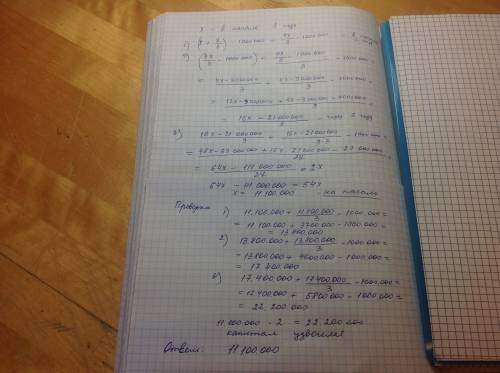 x - в начале 1 года
1) (x + x/3) - 1000000 = 4x/3 - 1000000 -
2) (4x/3 - 1000000) + (4x/3 - 1000000)/3 - 1000000 =
= (4x - 3000000)/3 + (4x - 3000000)/9 - 1000000 =
= (12x - 9000000 + 4x - 3000000 - 9000000)/9 =
= (16x - 21000000)/9 - через 2 года
3) (16x - 21000000)/9 + (16x - 21000000)/9·3 - 1000000 =
= (48x - 63000000 + 16x - 21000000 - 27000000)/27
= (64x - 111000000)/27 = 2x
64x - 111000000 = 54x
x = 11.100.000 - на начало
Проверка
1) 11.100.000 + 11.100.000/3 - 1000000 =
= 11.100.000 + 3700000 - 1000000 =
= 13.800.000
2) 13.800.000 + 13.800.000/3 - 1000000 =
= 13800000 + 4600000 - 1000000 =
= 17.400.000
3) 17.400.000 + 17400000/3 - 1000000 =
= 17400000 + 5800000 - 1000000 =
= 22.200.000
11.100.000 · 2 = 22.200.000
капитал удвоился
Ответ: 11100000